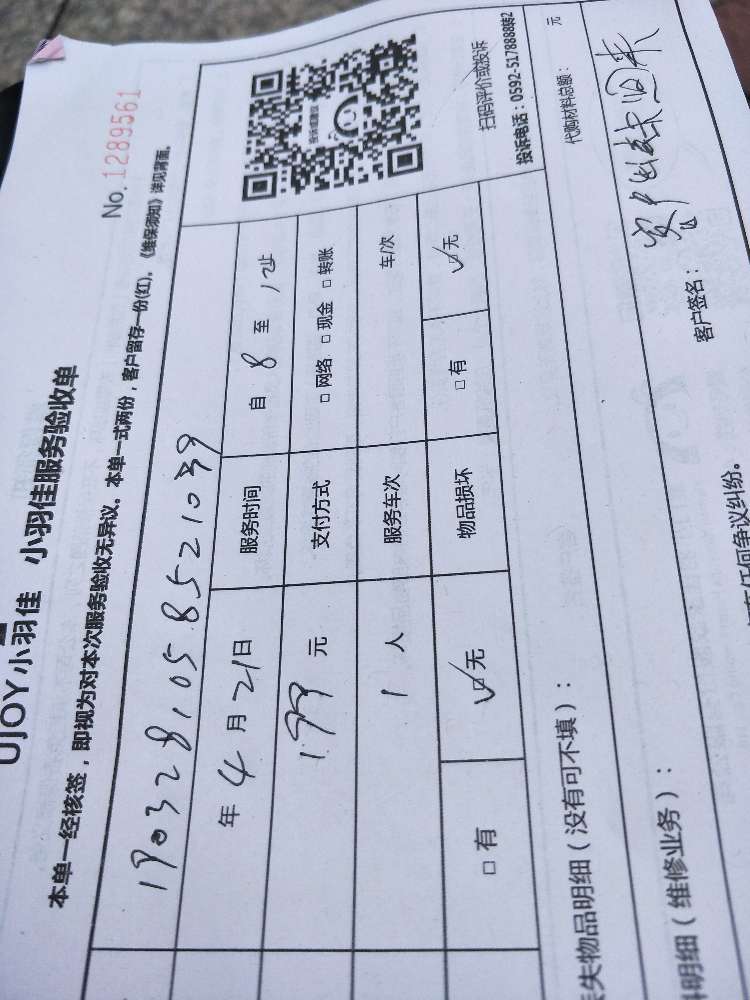 UJOY小羽佳 小羽佳服务验收单
No.1289561
本单一经核签，即视为对本次服务验收无异议。本单一式两份，客户留存一份(红)。《维保须知》详见背面。
190328105852103
年4月21日 服务时间 自8至12
199元 支付方式 □网络 □现金 □转账
1人 服务车次 车/次
□有 ☑无 物品损坏 □有 ☑无
投诉或建议
扫码评价或投诉
投诉电话：0592-5178888转2
失物品明细（没有可不填）：
代购材料总额： 元
明细（维修业务）：
客户签名：
任何争议纠纷。